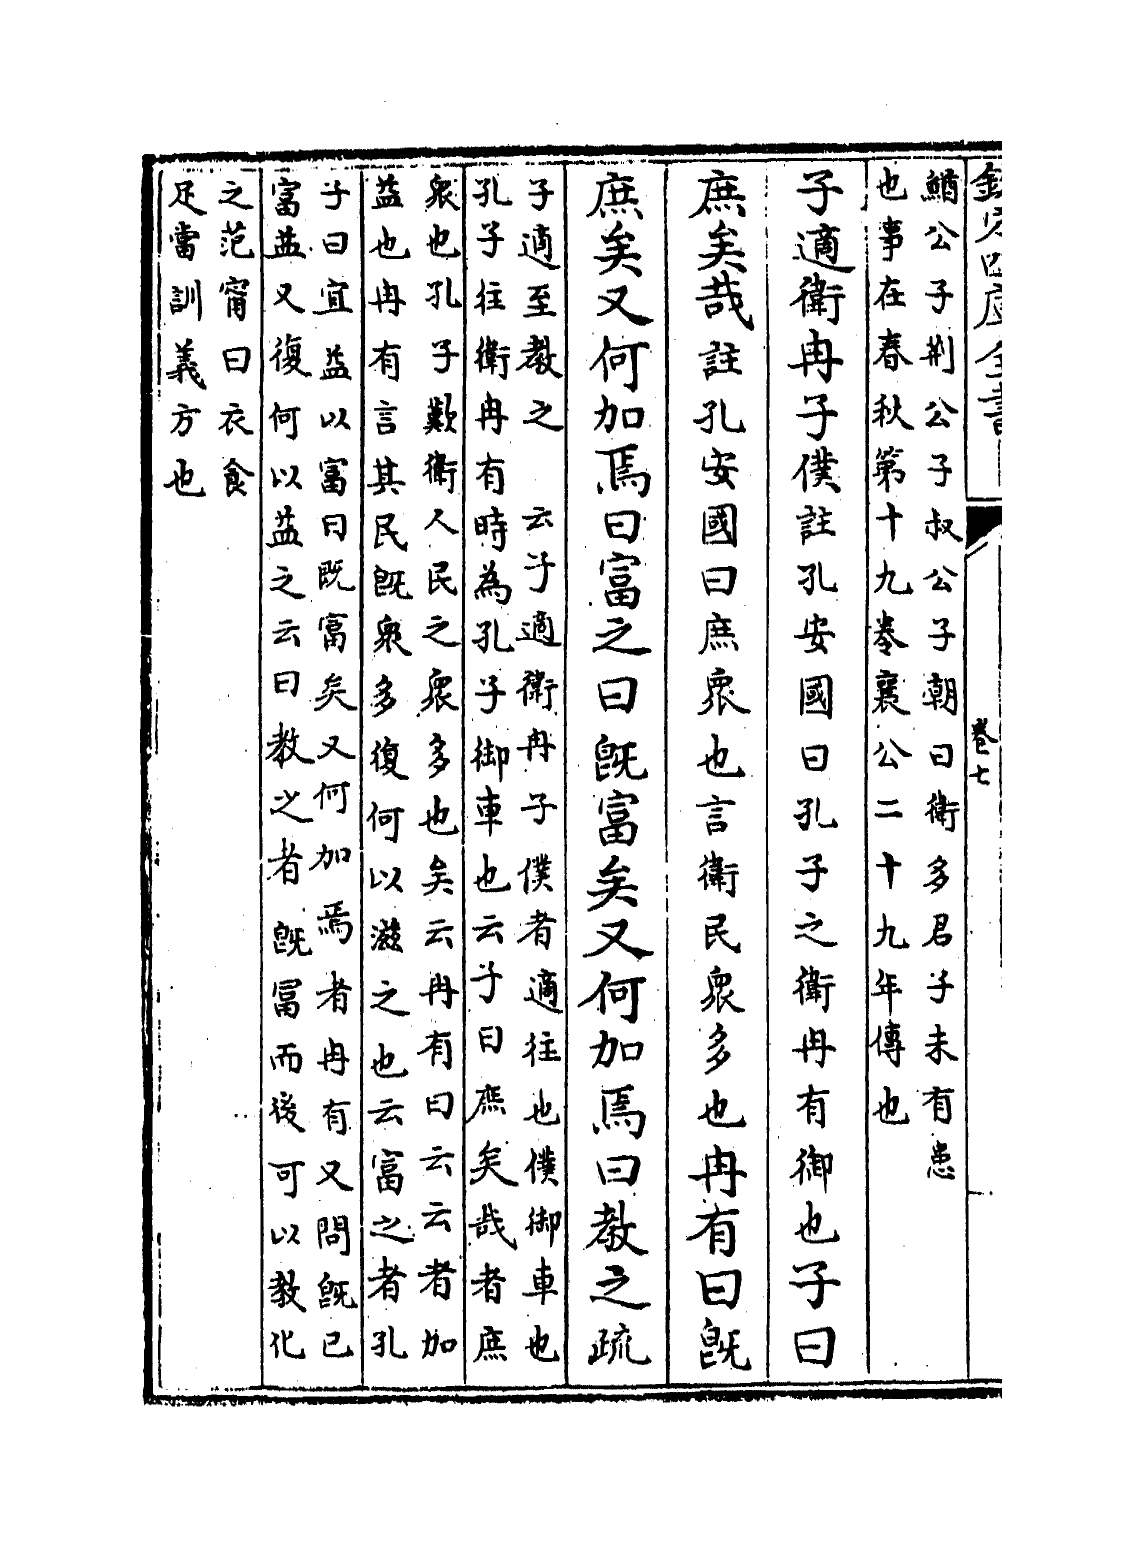 欽定四庫全書
卷七
鰌公子荆公子叔公子朝曰衛多君子未有患
也事在春秋第十九卷襄公二十九年傳也
子適衛冉子僕註孔安國曰孔子之衛冉有御也子曰
庶矣哉註孔安國曰庶衆也言衛民衆多也冉有曰既
庶矣又何加焉曰富之曰既富矣又何加焉曰教之疏
子適至教之　云子適衛冉子僕者適往也僕御車也
孔子往衛冉有時為孔子御車也云子曰庶矣哉者庶
衆也孔子歎衛人民之衆多也矣云冉有曰云云者加
益也冉有言其民既衆多復何以滋之也云富之者孔
子曰宜益以富曰既富矣又何加焉者冉有又問既已
富益又復何以益之云曰教之者既富而後可以教化
之范甯曰衣食
足當訓義方也